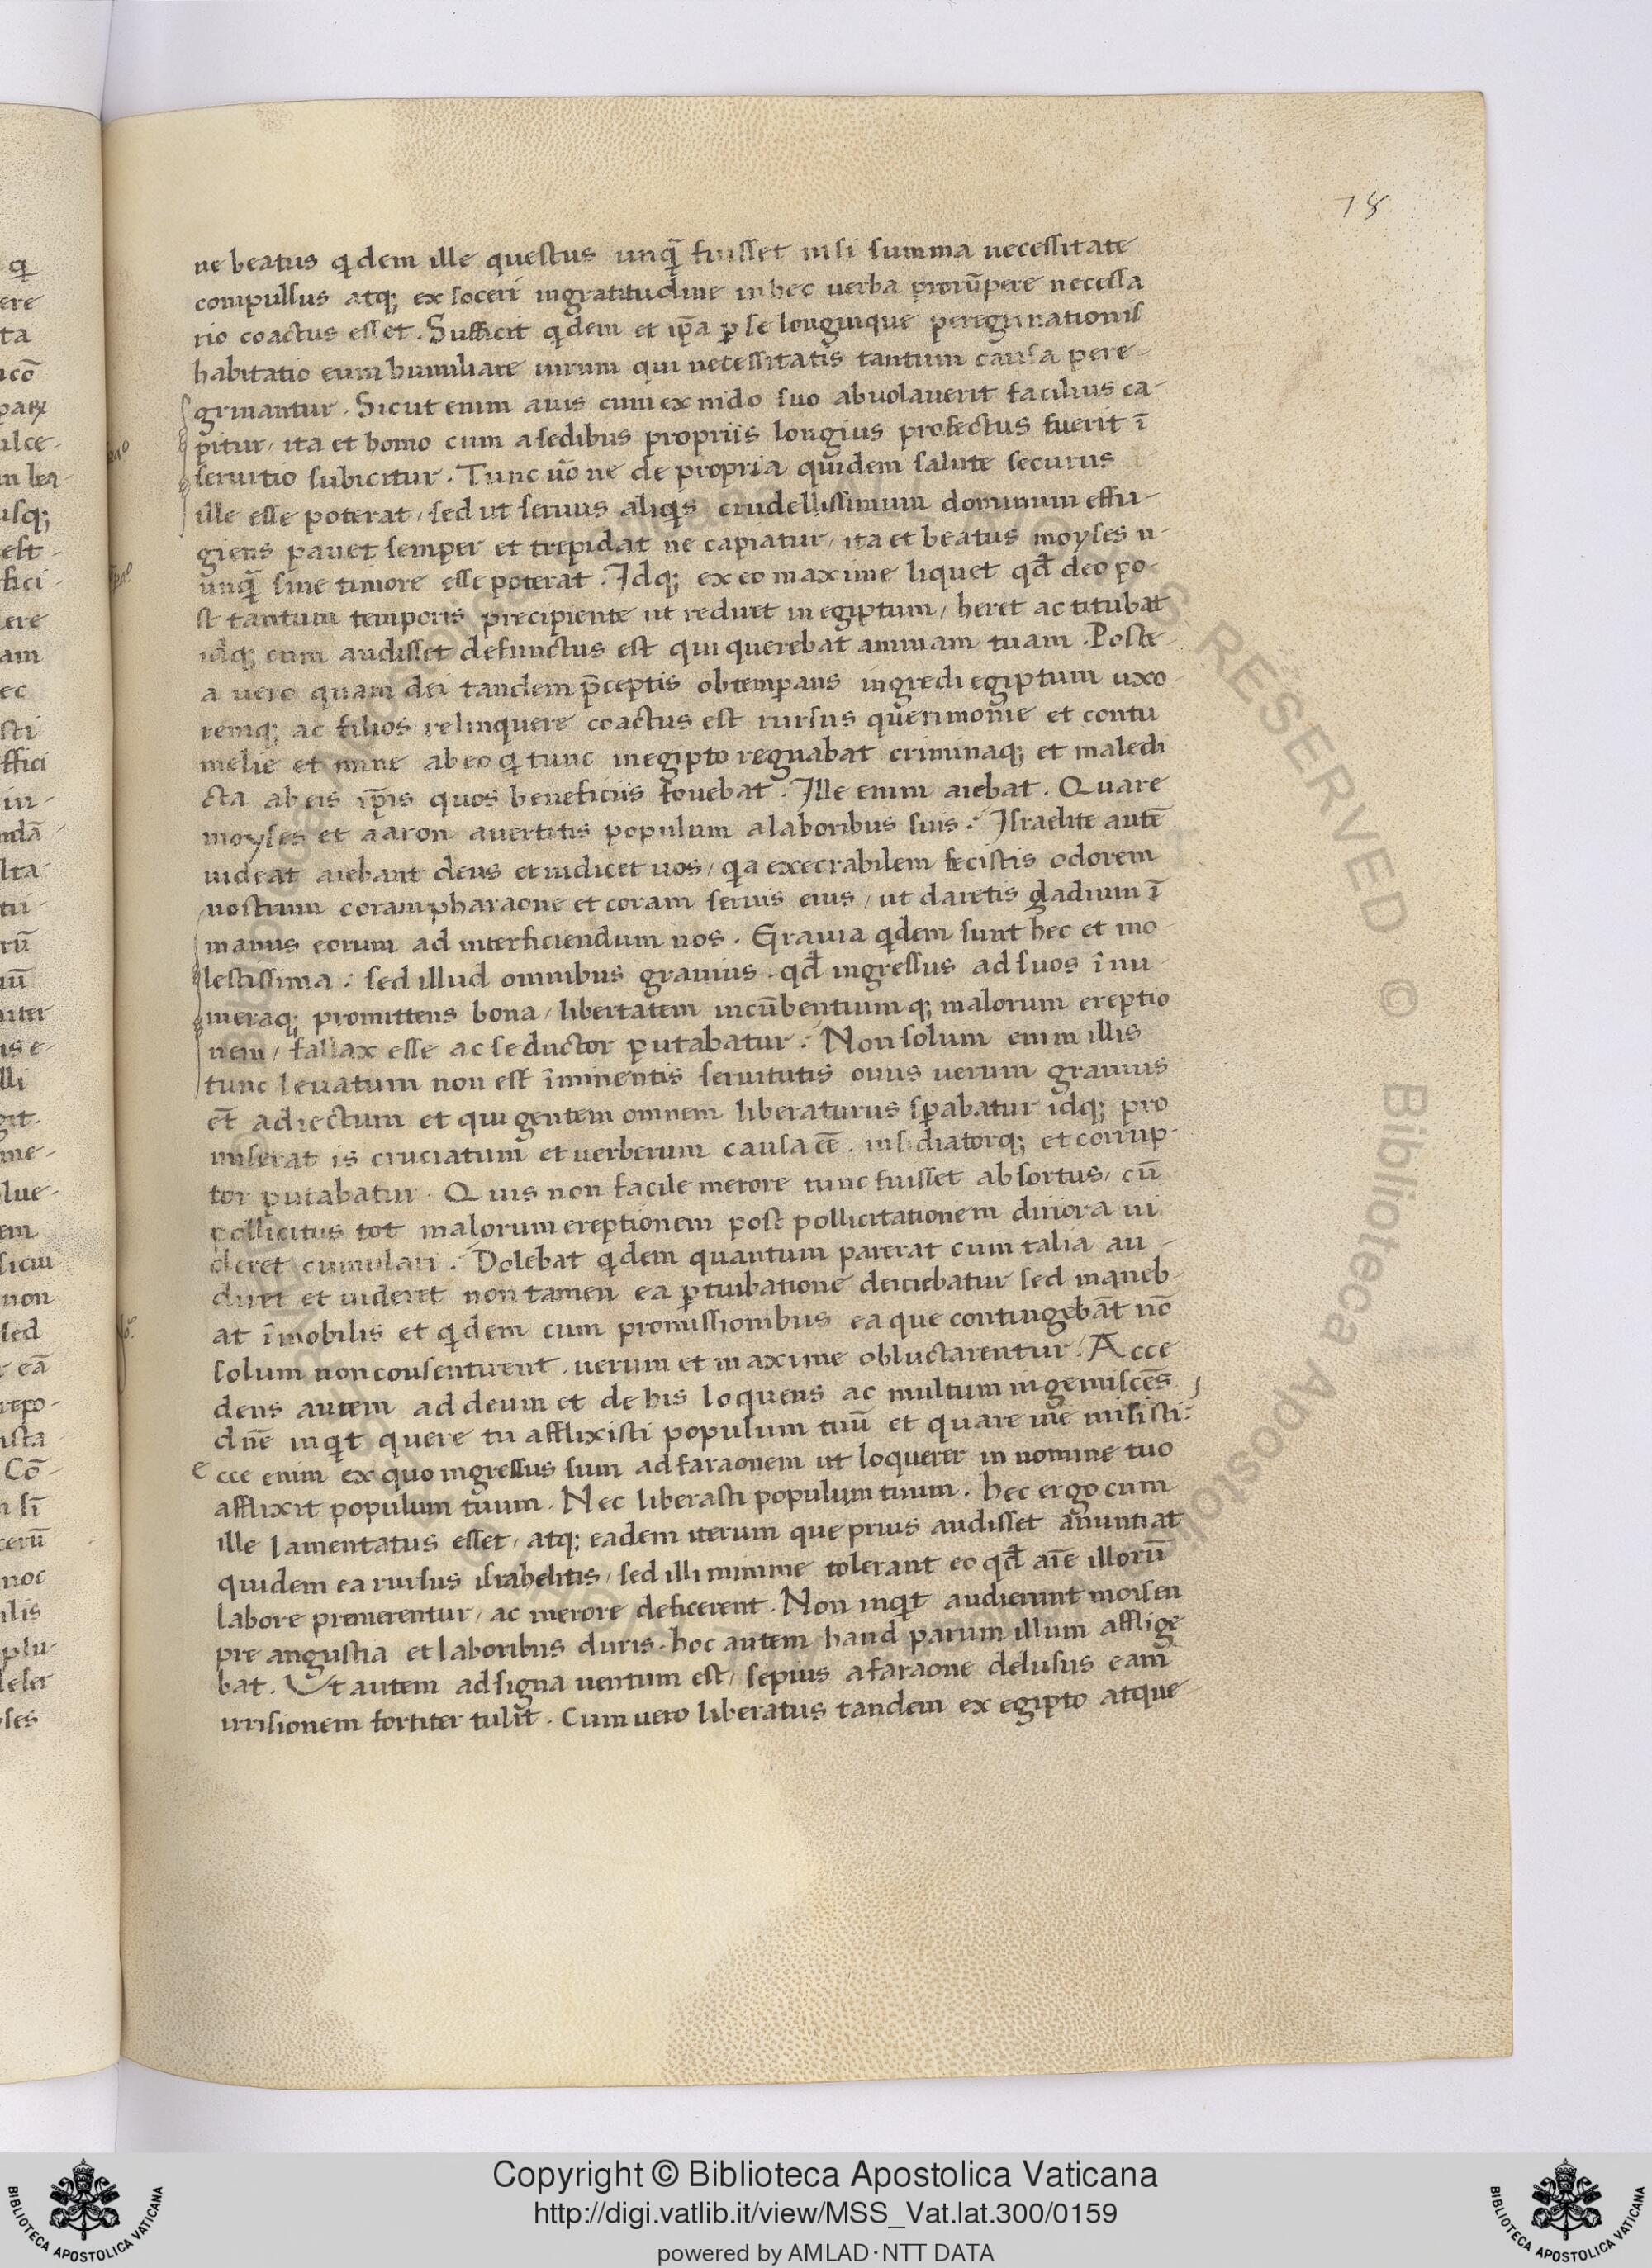 78
ne beatus qdem ille questus unq̄ fuisset nisi summa necessitate
compulsus atq; ex soceri ingratitudine in hec uerba prorūpere necessa
rio coactus esset. Sufficit qdem et ip̄a p se longinque peregrinationis
habitatio eum humiliare uirum qui necessitatis tantum causa pere-
grinantur. Sicut enim auis cum ex nido suo abuolauerit facilius ca-
pitur, ita et homo cum a sedibus propriis longius profectus fuerit ī
seruitio subicitur. Tunc ūo ne de propria quidem salute securus
ille esse poterat, sed ut seruus aliqis crudellissimum dominum effu-
giens pauet semper et trepidat ne capiatur, ita et beatus moyses n-
unq̄ sine timore esse poterat. Idq; ex eo maxime liquet qd̄ deo po-
st tantum temporis precipiente ut rediret in egiptum, heret ac titubat
idq; cum audisset defunctus est qui querebat animam tuam. Poste-
a uero quam dei tandem p̄ceptis obtemperans ingredi egiptum uxo-
remq; ac filios relinquere coactus est rursus querimonie et contu
melie et mine ab eo q tunc in egipto regnabat criminaq; et maledi
cta ab eis ip̄is quos beneficiis fouebat. Ille enim aiebat. Quare
moyses et aaron auertitis populum a laboribus suis. Israelite autē
uideat aiebant deus et iudicet uos, qa execrabilem fecistis odorem
nostrum coram pharaone et coram seruis eius, ut daretis gladium ī
manus eorum ad interficiendum nos. Grauia qdem sunt hec et mo
lestissima: sed illud omnibus grauius. qd̄ ingressus ad suos īnu
meraq; promittens bona, libertatem incūbentiumq; malorum ereptio
nem, fallax esse ac seductor putabatur. Non solum enim illis
tunc leuatum non est īminentis seruitutis onus uerum grauius
et̄ adiectum et qui gentem omnem liberaturus sperabatur idq; pro
miserat is cruciatum et uerberum causa eē. insidiatorq; et corrup-
tor putabatur. Quis non facile merore tunc fuisset absortus, cū
pollicitus tot malorum ereptionem post pollicitationem diriora ui
deret cumulari. Dolebat qdem quantum parerat cum talia au-
diret et uideret non tamen ea pturbatione deiciebatur sed maneb-
at īmobilis et qdem cum promissionibus ea que contingebāt nō
solum non consentirent. uerum et maxime obluctarentur. Acce
dens autem ad deum et de his loquens ac multum ingemiscēs
dn̄e inqit quere tu afflixisti populum tuū et quare me misisti:
ecce enim ex quo ingressus sum ad faraonem ut loquerer in nomine tuo
afflixit populum tuum. Nec liberasti populum tuum. hec ergo cum
ille lamentatus esset, atq; eadem iterum que prius audisset an̄untiat
quidem ea rursus israhelitis, sed illi minime tolerant eo qd̄ aīe illorū
labore premerentur, ac merore deficerent. Non inqit audierunt moisen
pre angustia et laboribus duris. hoc autem haud parum illum afflige
bat. Ut autem ad signa uentum est, sepius a faraone delusus eam
irrisionem fortiter tulit. Cum uero liberatus tandem ex egipto atque
Copyright © Biblioteca Apostolica Vaticana
http://digi.vatlib.it/view/MSS_Vat.lat.300/0159
powered by AMLAD·NTT DATA